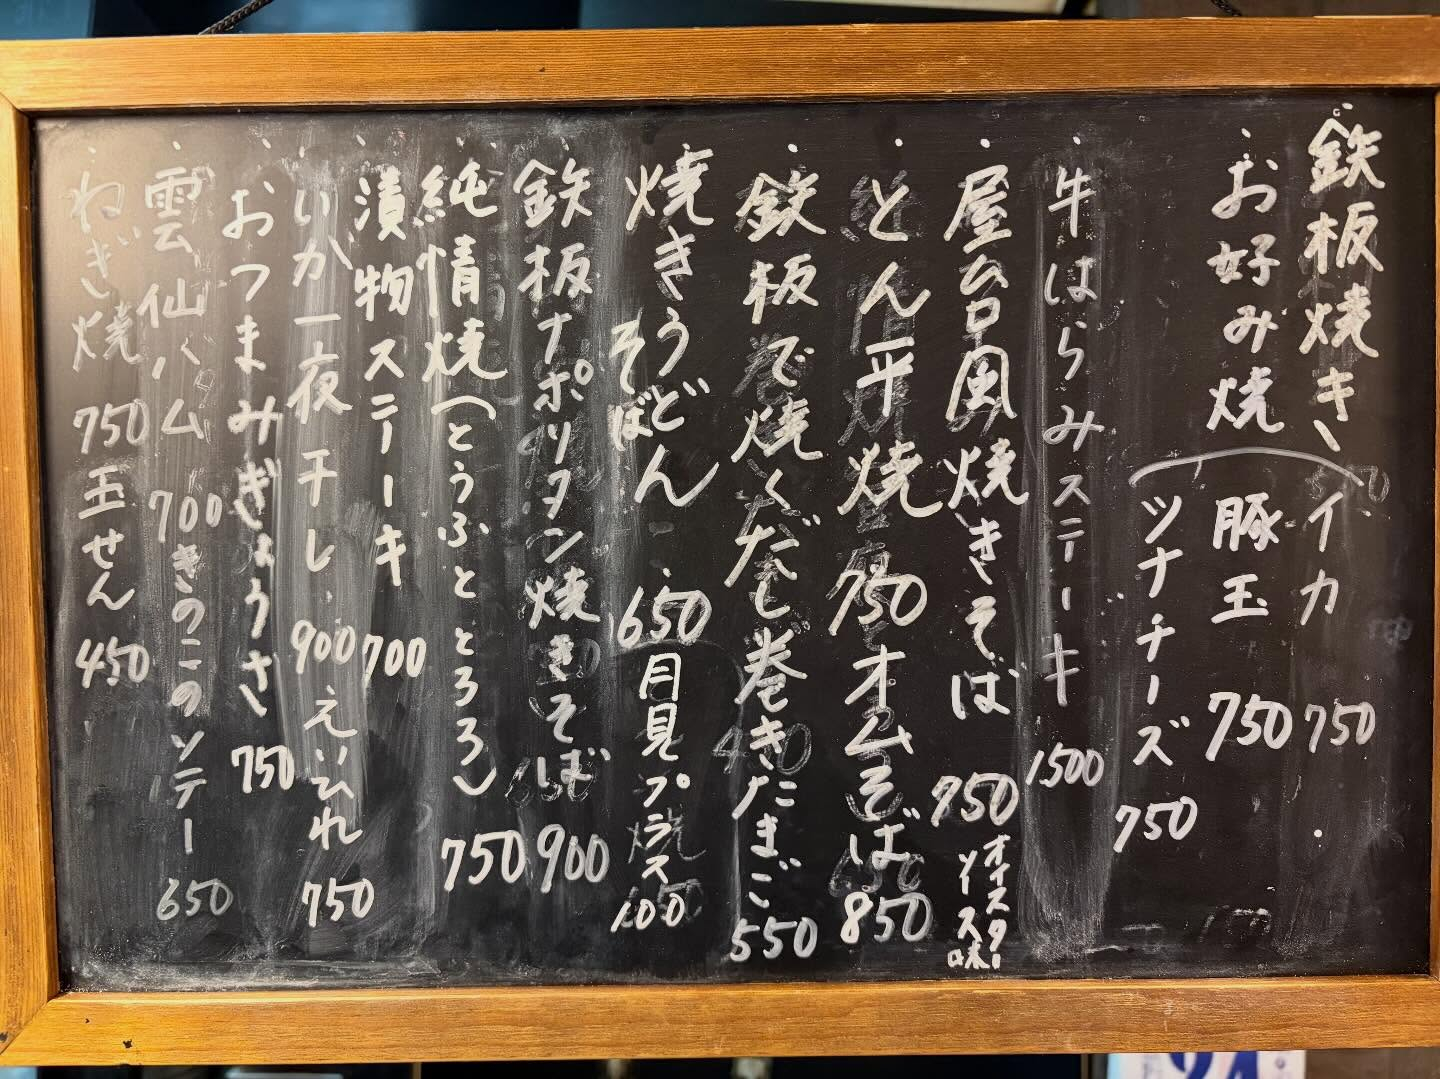 鉄板焼き、
イカ 750
・お好み焼 豚玉 750
ツナチーズ 750
・牛はらみステーキ 1500
・屋台風焼きそば 750 オイスターソース味
・とん平焼 750 オムそば 850
・鉄板で焼くだし巻きたまご 550
・焼きうどん 650 月見プラス100
そば
・鉄板ナポリタン焼きそば 900
・純情焼(とうふととろろ) 750
・漬物ステーキ 700
・いか一夜干し 900 えいひれ 750
・おつまみぎょうさ 750
・雲仙ハム 700 きのこのソテー 650
・ねぎ焼 750 玉せん 450